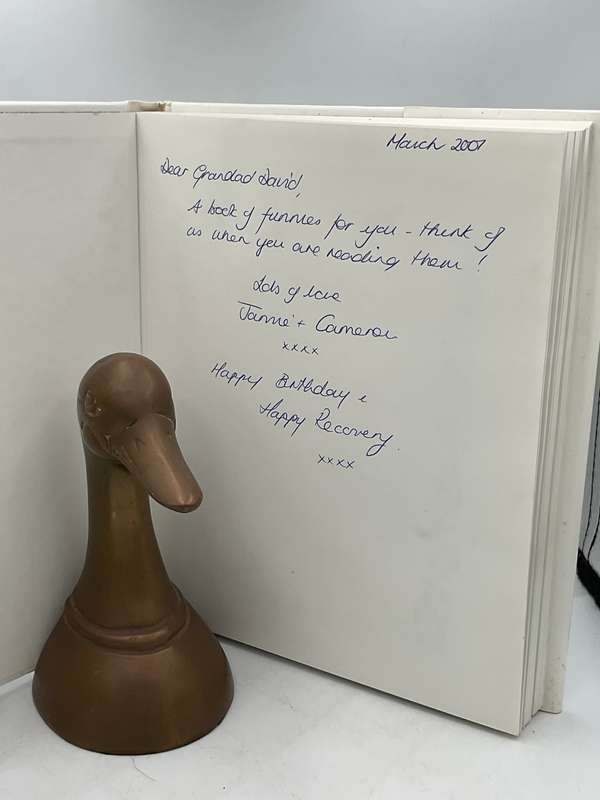 March 2007
Dear Grandad David,
A book of funnies for you - think of
us when you are reading them!
Lots of love
Jamie + Cameron
xxxx
Happy Birthday &
Happy Recovery.
xxxx